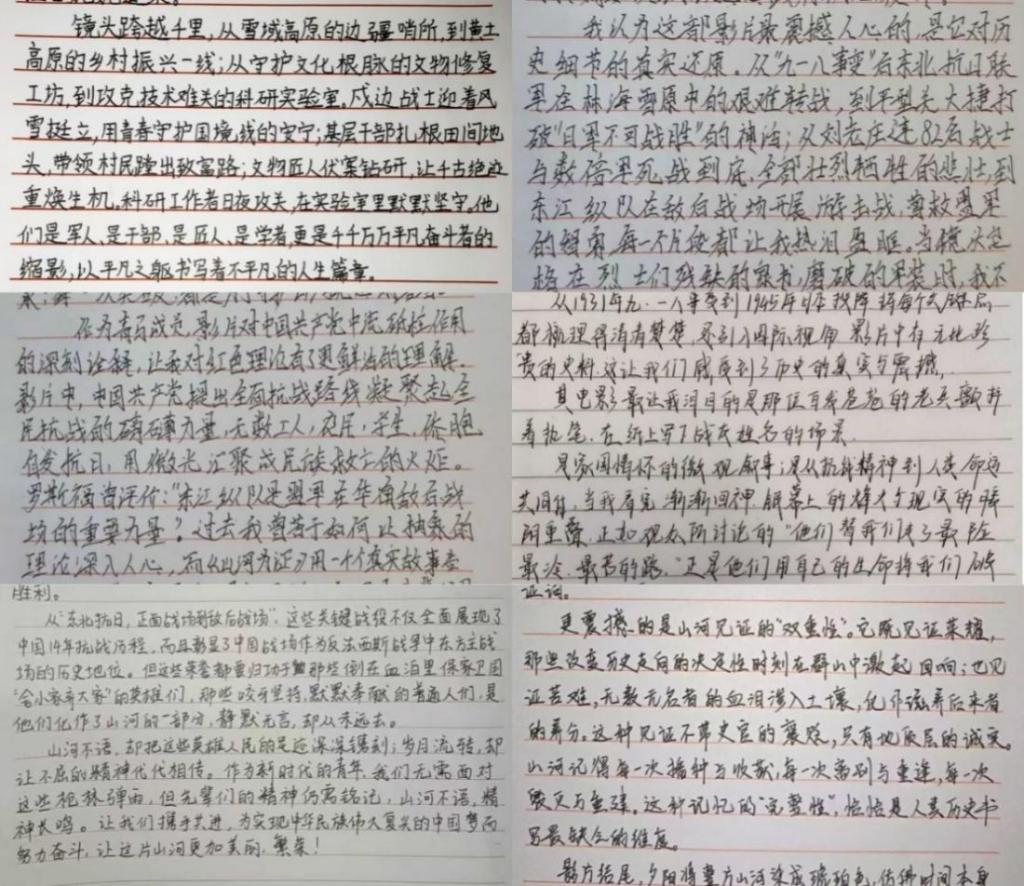 镜头跨越千里，从雪域高原的边疆哨所，到黄土
高原的乡村振兴一线；从守护文化根脉的文物修复
工坊，到攻克技术难关的科研实验室。戍边战士迎着风
雪挺立，用青春守护国境线的安宁；基层干部扎根田间地
头，带领村民蹚出致富路；文物匠人伏案钻研，让千古绝迹
重焕生机。科研工作者日夜攻关，在实验室里默默坚守。他
们是军人、是干部、是匠人、是学者，更是千千万万平凡奋斗者的
缩影，以平凡之躯书写着不平凡的人生篇章。
我认为这部影片最震撼人心的，是它对历
史细节的真实还原。从“九一八事变”后东北抗日联
军在林海雪原中的艰难转战，到平型关大捷打
破“日军不可战胜”的神话；从刘老庄连82名战士
与数倍军死战到底，全部壮烈牺牲的悲壮，到
东江纵队在敌后战场开展游击战，营救盟军
的智勇，每一个片段都让我热泪盈眶。当镜头定
格在烈士们残缺的家书，磨破的军装时，我不
作为青马成员，影片对中国共产党中流砥柱作用
的深刻诠释，让我对红色理论有了更鲜活的理解。
影片中，中国共产党提出全面抗战路线，凝聚起全
民抗战的磅礴力量，无数工人，农民，学生，侨胞
自发抗日，用微光汇聚成民族救亡的火炬。
罗斯福曾评价：“东江纵队是盟军在华南敌后战
场的重要力量”。过去我曾苦于如何让抽象的
理论深入人心，而《山河为证》用一个个真实故事告
从1931年九·一八事变到1945年日本投降
都梳理得清清楚楚，还引入国际视角 影片中有
贵的史料 这让我们感受到了历史的真实与震撼，
其电影最让我泪目的是那位百岁 的老兵颤抖
着执笔，在纸上写下战友姓名的场景
是家国情怀的微观叙事；是从抗战精神到人类命运
共同体，当我看完 渐渐回神，屏幕上的烽火与现实的
重叠，正如观众所讨论的“他们替我们走了最险
最冷、最苦的路，”正是他们用自己的生命将我们
胜利。
从“东北抗日，正面战场到敌后战场”，这些关键战役不仅全面展现了
中国14年抗战历程，而且彰显了中国战场作为反法西斯战争中东方主战
场的历史地位。但这些荣誉都要归功于那些倒在血泊里保家卫国
“舍小家奔大家”的英雄们，那些咬牙坚持，默默奉献的普通人们，是
他们化作了山河的一部分，静默无言，却从未远去。
山河不语，却把这些英雄人民的足迹深深镌刻；岁月流转，却
让不屈的精神代代相传。作为新时代的青年，我们无需面对
这些枪林弹雨，但先辈们的精神仍需铭记，山河不语，精
神长鸣。让我们携手共进，为实现中华民族伟大复兴的中国梦而
努力奋斗，让这片山河更加美丽，繁荣！
证词。
更震撼的是山河见证的“双重性”。它既见证荣耀，
那些改变历史走向的决定性时刻在群山中激起回响；也见
证苦难，无数无名者的血泪渗入土壤，化作滋养后来者
的养分。这种见证不带史官的褒贬，只有地质层的诚实。
山河记得每一次播种与收获，每一次离别与重逢，每一次
毁灭与重建。这种记忆的“完整性”，恰恰是人类历史书
写最缺乏的维度。
影片结尾，夕阳将整片山河染成琥珀色，仿佛时间本身